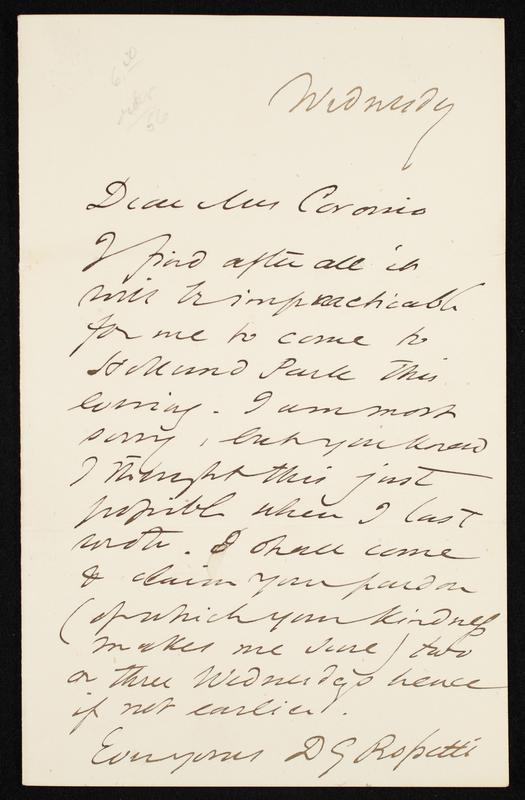 Wednesday
Dear Mrs Coronio
I find after all it
will be impracticable
for me to come to
Holland Park this
evening. I am most
sorry, but you know
I thought this just
possible when I last
wrote. I shall come
& claim your pardon
(of which your kindness
makes me sure) two
or three Wednesdays hence
if not earlier.
Ever yours D G Rossetti